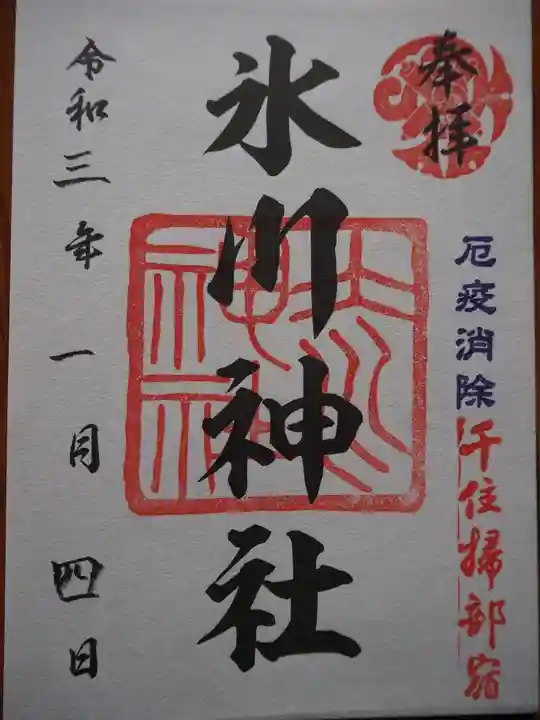 奉拝
厄疫消除
千住掃部宿
氷川神社
令和三年一月四日